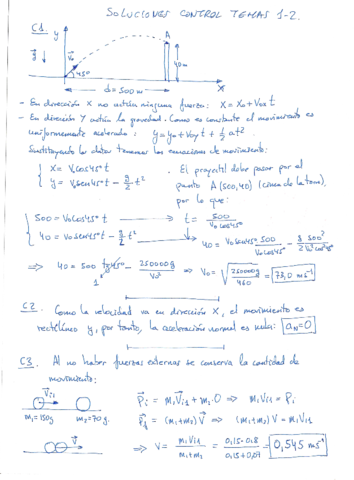 SOLUCIONES CONTROL TEMAS 1-2.
C1 y
g V₀ A
40m
45º
d=500m x
- En dirección X no actúa ninguna fuerza: X = X₀ + V₀ₓ t
- En dirección Y actúa la gravedad. Como es constante el movimiento es
uniformemente acelerado: y = y₀ + V₀y t + ½ a t²
Sustituyendo los datos tenemos las ecuaciones de movimiento:
x = V₀ cos45º t
y = V₀ sen45º t - g/2 t²
El proyectil debe pasar por el
punto A (500,40) (cima de la torre),
por lo que:
500 = V₀ cos45º t → t = 500/(V₀ cos45º)
40 = V₀ sen45º t - g/2 t² → 40 = V₀ sen45º 500/(V₀ cos45º) - g/2 500²/(V₀² cos²45º)
⇒ 40 = 500 tg45º - 250000g/V₀² ⇒ V₀ = √(250000g/460) = 73,0 ms⁻¹
1
C2. Como la velocidad va en dirección X, el movimiento es
rectilíneo y, por tanto, la aceleración normal es nula: aN=0
C3. Al no haber fuerzas externas se conserva la cantidad de
movimiento:
V⃗i1
m₁=150g m₂=70g.
P⃗i = m₁V⃗i1 + m₂·0 ⇒ m₁Vi1 = Pi
P⃗f = (m₁+m₂)V⃗ ⇒ (m₁+m₂)V = m₁Vi1
V⃗
⇒ V = m₁Vi1/(m₁+m₂) = 0,15·0,8/(0,15+0,07) = 0,545 ms⁻¹